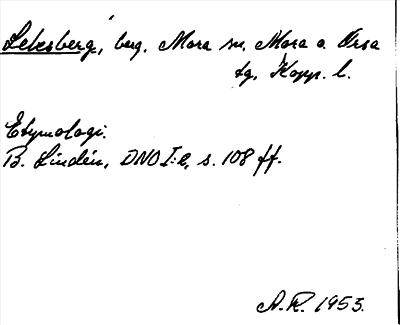 Leksberg, berg, Mora sn, Mora o. Orsa
tg, Kopp. l.
Etymologi.
B. Lindén, DNO I:2, s. 108 ff.
A.R. 1953.